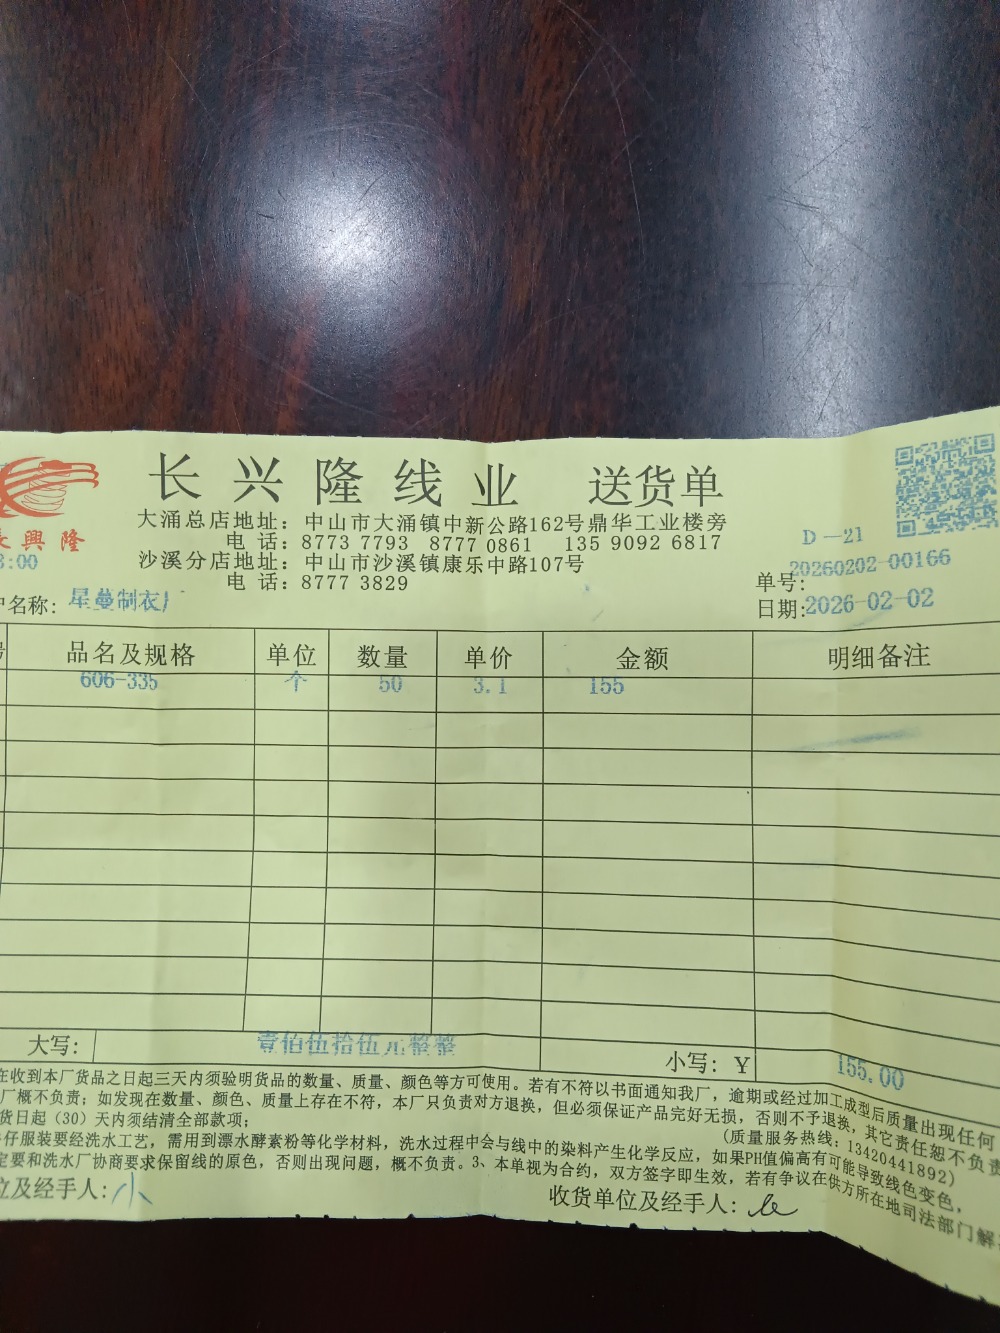 长兴隆线业 送货单
大涌总店地址：中山市大涌镇中新公路162号鼎华工业楼旁
电 话：8773 7793 8777 0861 135 9092 6817
沙溪分店地址：中山市沙溪镇康乐中路107号
电 话：8777 3829
興隆
:00
D-21
单号：20260202-00166
日期：2026-02-02
名称：星蔓制衣厂
品名及规格 单位 数量 单价 金额 明细备注
606-335 个 50 3.1 155
大写： 壹佰伍拾伍元整整
小写：￥ 155.00
在收到本厂货品之日起三天内须验明货品的数量、质量、颜色等方可使用。若有不符以书面通知我厂，逾期或经过加工成型后质量出现任何
厂概不负责；如发现在数量、颜色、质量上存在不符，本厂只负责对方退换，但必须保证产品完好无损，否则不予退换，其它责任恕不负责
货日起（30）天内须结清全部款项；
（质量服务热线：13420441892）
仔服装要经洗水工艺，需用到漂水酵素粉等化学材料，洗水过程中会与线中的染料产生化学反应，如果PH值偏高有可能导致线色变色，
定要和洗水厂协商要求保留线的原色，否则出现问题，概不负责。3、本单视为合约，双方签字即生效，若有争议在供方所在地司法部门解
位及经手人：小
收货单位及经手人：